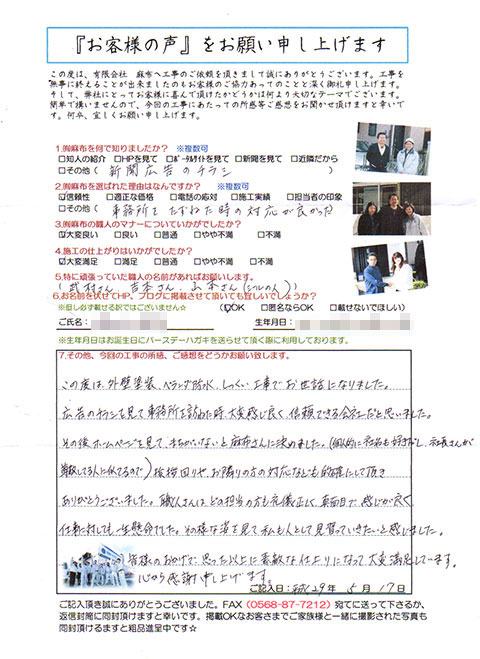 『お客様の声』をお願い申し上げます
この度は、有限会社 麻布へ工事のご依頼を頂きまして誠にありがとうございます。工事を
無事に終えることが出来ましたのもお客様のご協力あってのことと深く御礼申し上げます。
そして、弊社にとってお客様に喜んで頂けたかどうかは何より大切なテーマでございます。
簡単で構いませんので、今回の工事にあたっての所感等ご感想をお聞かせ頂けますと幸いで
す。何卒、宜しくお願い申し上げます。
1.㈲麻布を何で知りましたか? ※複数可
□知人の紹介 □HPを見て □ポータルサイトを見て □新聞を見て □近隣だから
□その他( 新聞広告のチラシ )
2.㈲麻布を選ばれた理由はなんですか? ※複数可
☑信頼性 □適正な価格 □電話の応対 □施工実績 □担当者の印象
□その他( 事務所をたずねた時の対応が良かった )
3.㈲麻布の職人のマナーについていかがでしたか?
☑大変良い □良い □普通 □やや不満 □不満
4.施工の仕上がりはいかがでしたか?
☑大変満足 □満足 □普通 □やや不満 □不満
5.特に頑張っていた職人の名前があればお願いします。
( 武村さん 吉本さん 山本さん(シルの人) )
6.お名前を伏せてHP、ブログに掲載させて頂いても宜しいでしょうか?
※但し必ず載せる訳ではございません☆ ☑OK □匿名ならOK □載せないでほしい)
ご氏名: 生年月日:
※生年月日はお誕生日にバースデーハガキを送らせて頂く際に利用しております。
7.その他、今回の工事の所感、ご感想をどうかお願い致します。
この度は、外壁塗装、ベランダ防水、しっくい工事でお世話になりました。
広告のチラシを見て事務所を訪れた時、大変感じ良く、信頼できる会社だと思いました。
その後ホームページを見て、まちがいないと麻布さんに決めました。(個人的に社名も好きだし、社長さんが
尊敬してる人に似てるので)挨拶回りや、お隣りの方の対応なども的確にして頂き
ありがとうございました。職人さんは、どの担当の方も礼儀正しく、真面目で、感じが良く
仕事に対しても一生懸命でした。その様な姿を見て私も人として見習っていきたいと感じました。
皆様のおかげで、思った以上に素敵な仕上りになって、大変満足しています。
心から感謝申し上げます。
ご記入日:平成29年 5月 17日
ご記入頂き誠にありがとうございました。FAX(0568-87-7212)宛てに送って下さるか、
返信封筒に同封頂けますと幸いです。掲載OKなお客さまでご家族様と一緒に撮影された写真も
同封頂けるますと粗品進呈中です☆